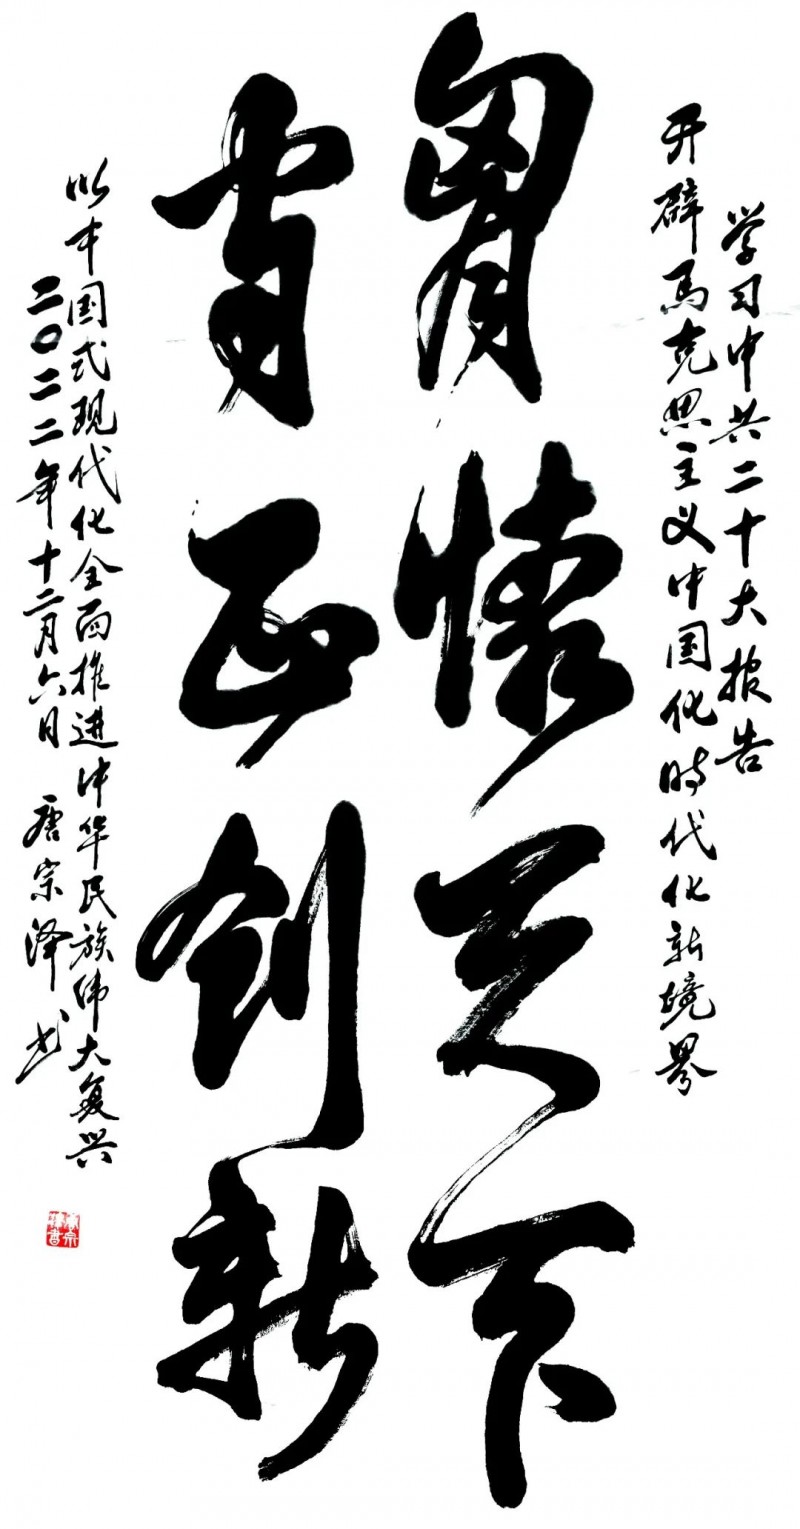 学习中共二十大报告
开辟马克思主义中国化時代化新境界
胷懷天下
守正创新
以中国式现代化全面推进中华民族伟大复兴
二〇二二年十二月六日 唐宗泽书